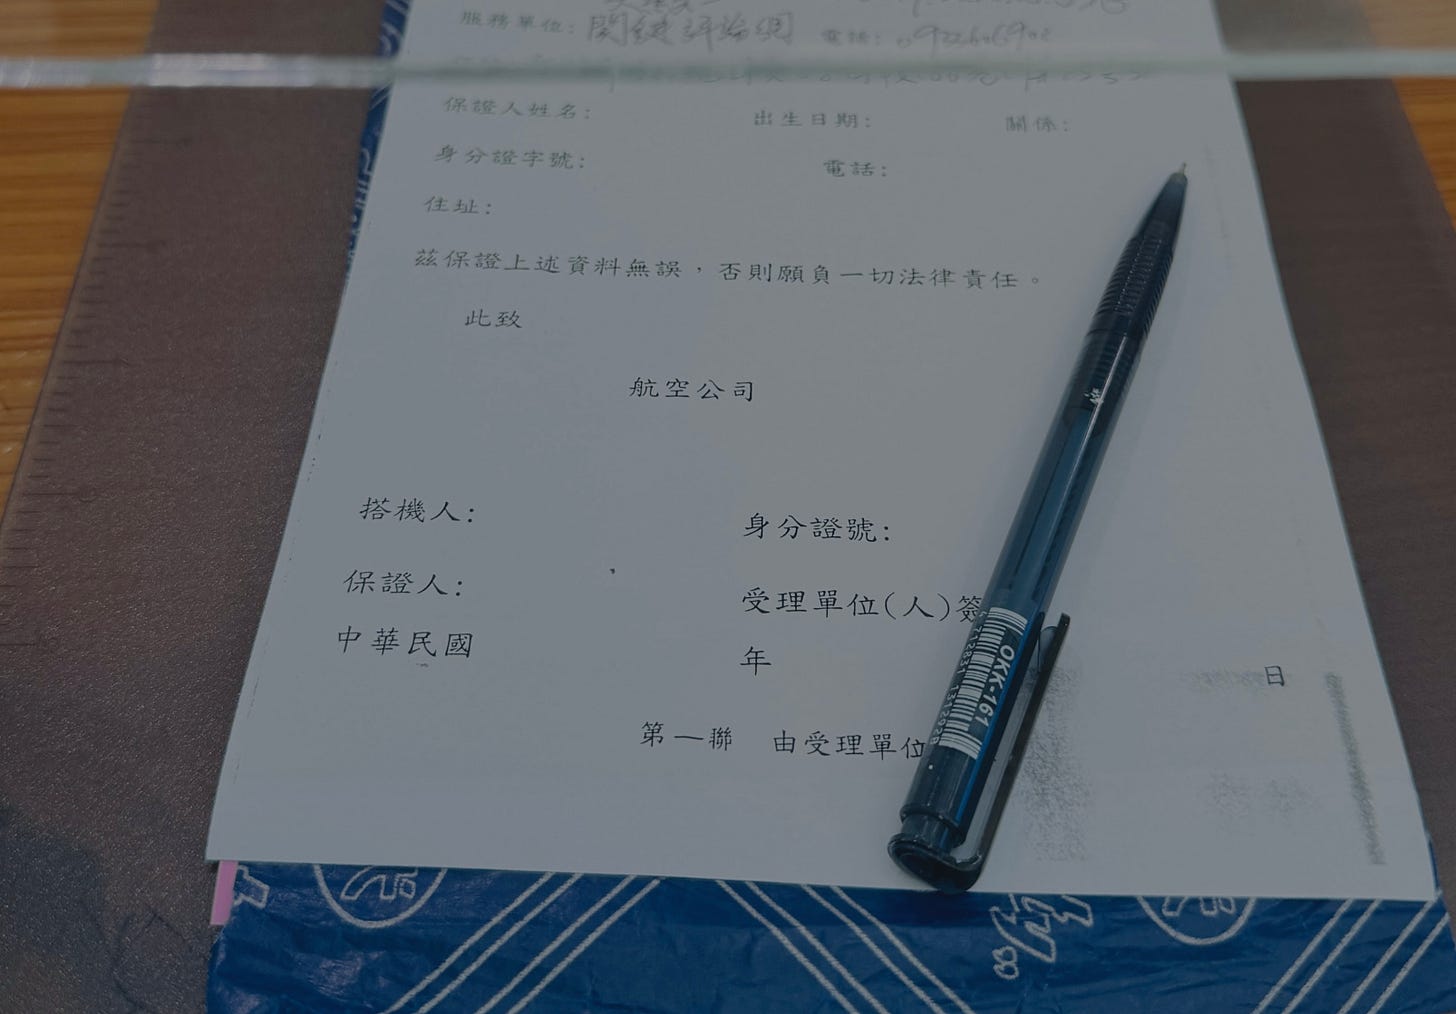 服務單位: 關鍵評論網 電話:
保證人姓名: 出生日期: 關係:
身分證字號: 電話:
住址:
茲保證上述資料無誤，否則願負一切法律責任。
此致
航空公司
搭機人: 身分證號:
保證人: 受理單位(人)簽
中華民國 年 日
第一聯 由受理單位
OKK-161